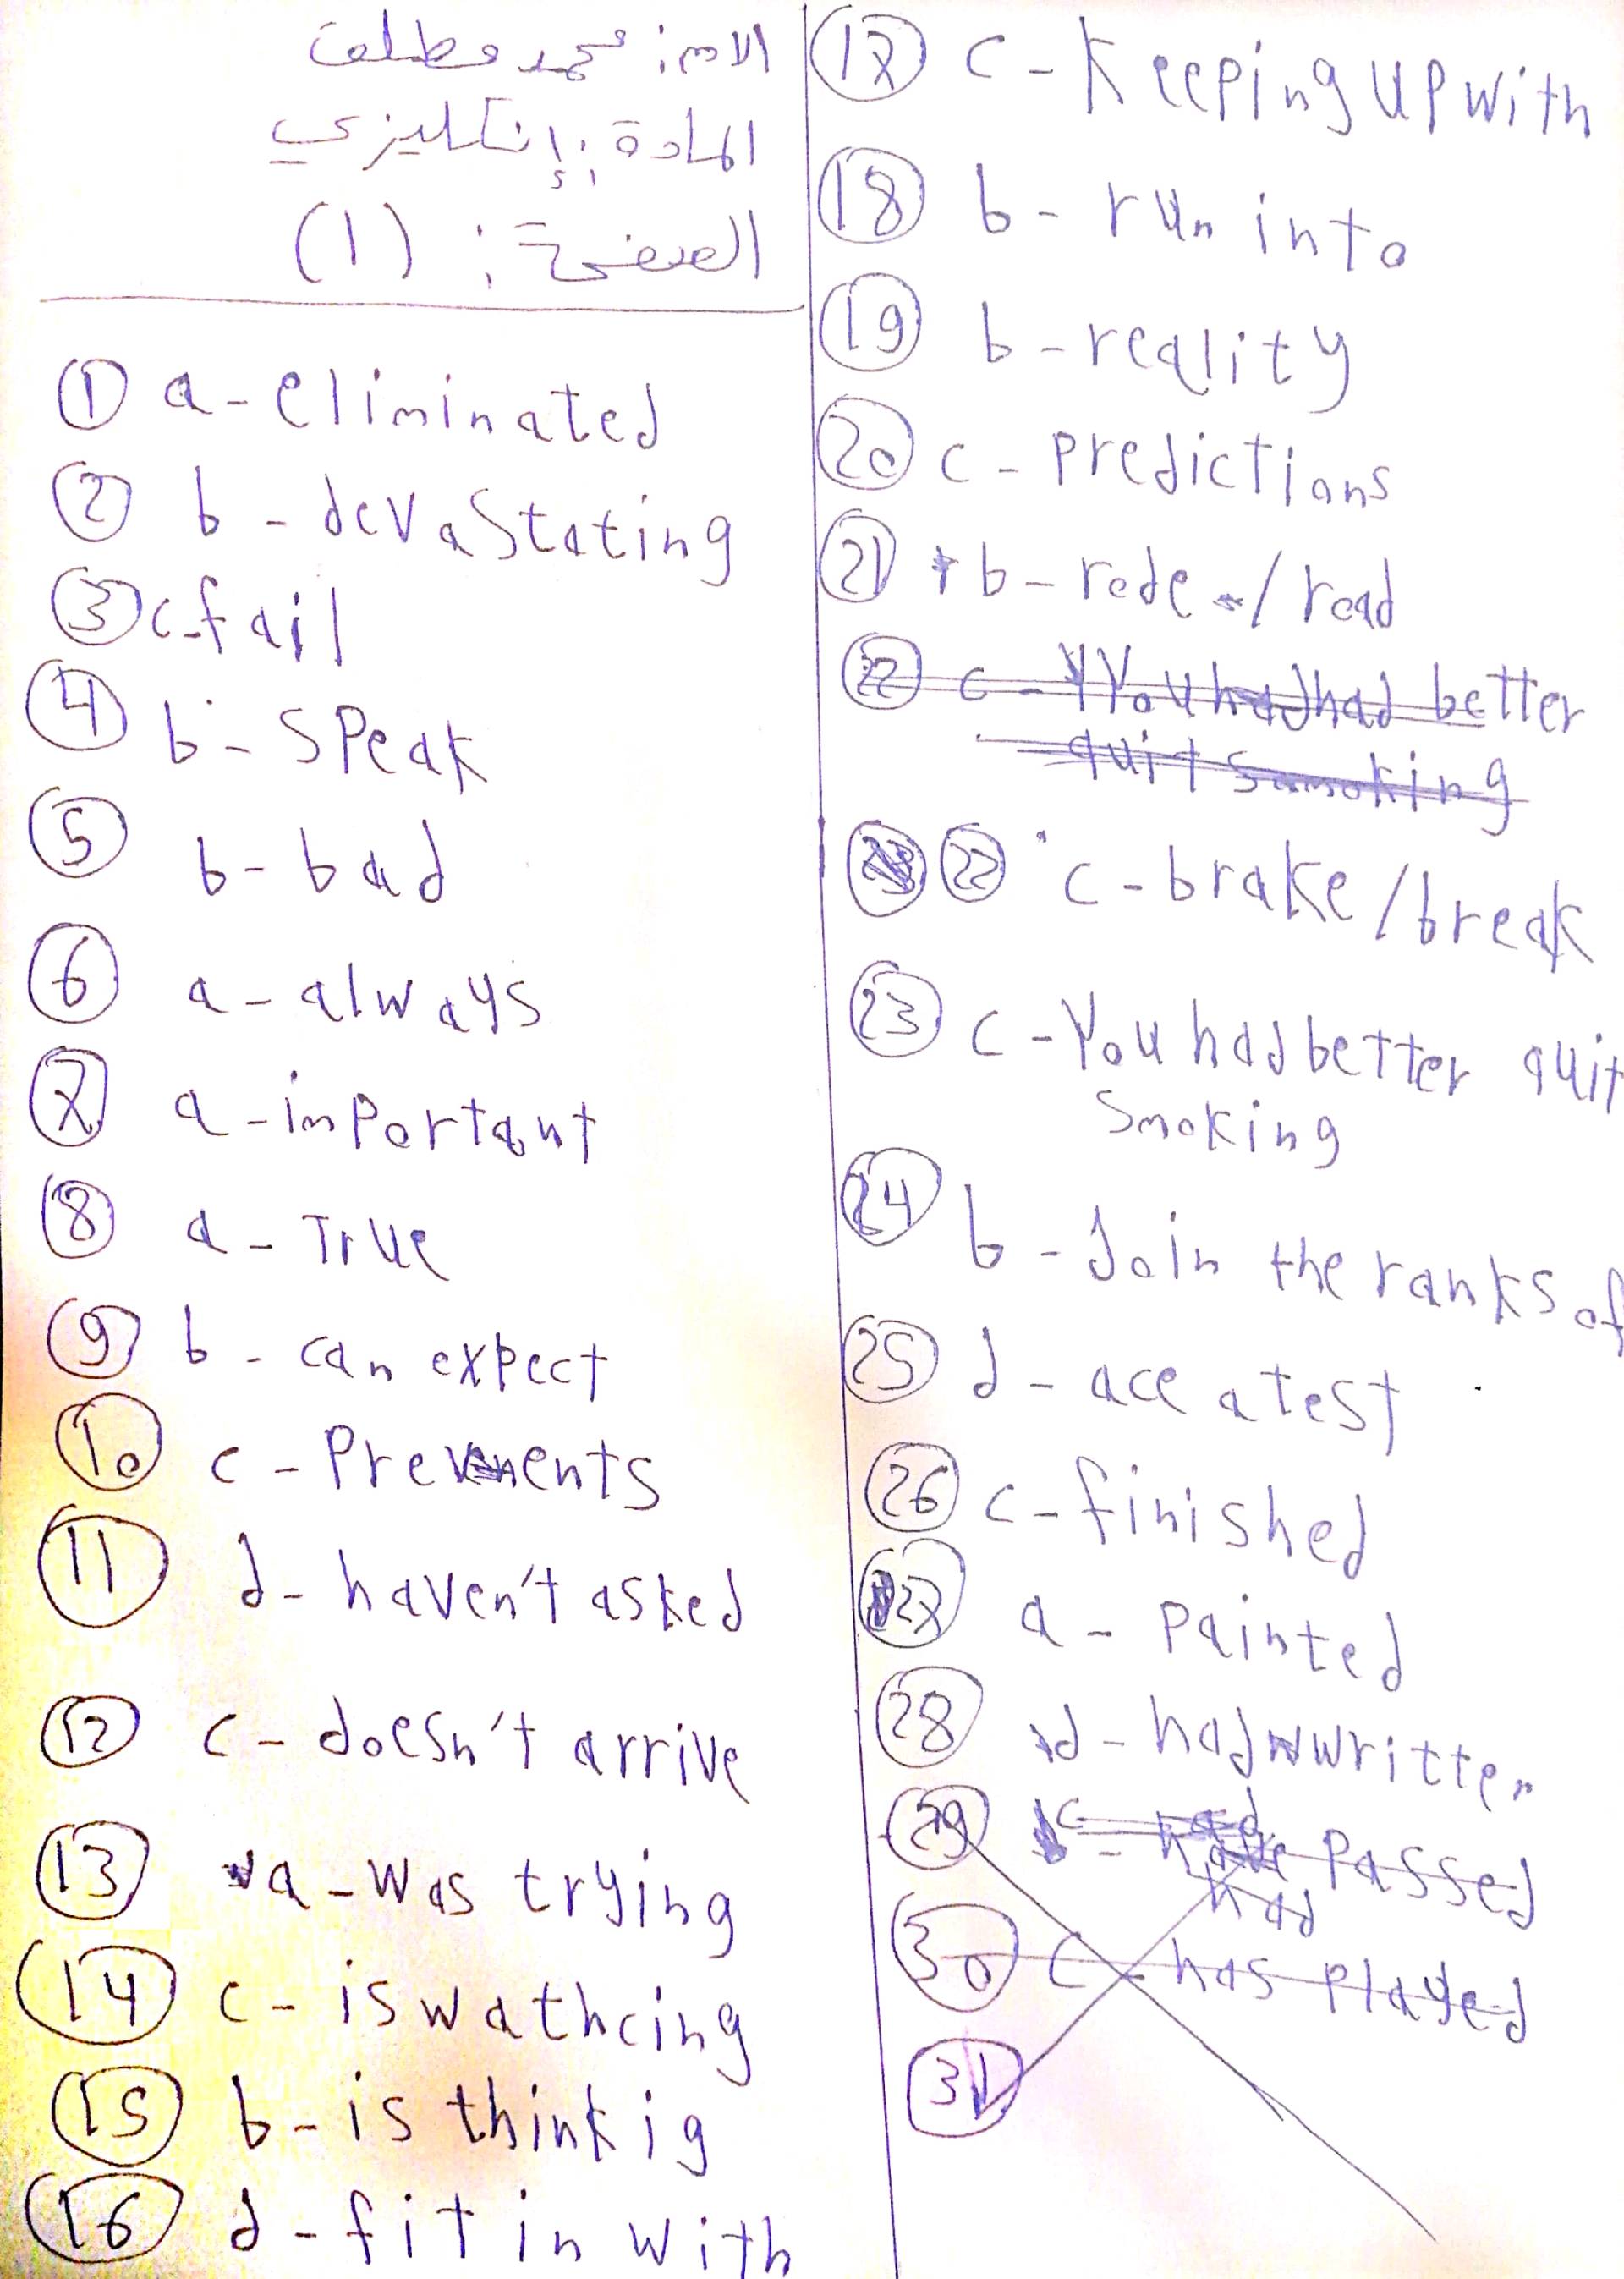 الاسم: محمد مطلق
المادة: إنكليزي
الصفحة: (1)
① a - eliminated
② b - devastating
③ c - fail
④ b - speak
⑤ b - bad
⑥ a - always
⑦ a - important
⑧ a - True
⑨ b - can expect
⑩ c - Prevents
⑪ d - haven't asked
⑫ c - doesn't arrive
⑬ a - was trying
⑭ c - is wathcing
⑮ b - is thinkig
⑯ d - fit in with
⑰ c - Keeping up with
⑱ b - run into
⑲ b - reality
⑳ c - predictions
㉑ b - rode / road
㉒ c - You had better
quit smoking
㉒ c - brake / break
㉓ c - You had better quit
smoking
㉔ b - Join the ranks of
㉕ d - ace a test
㉖ c - finished
㉗ a - painted
㉘ d - had written
㉙ c - had passed
㉚ c - has played
㉛